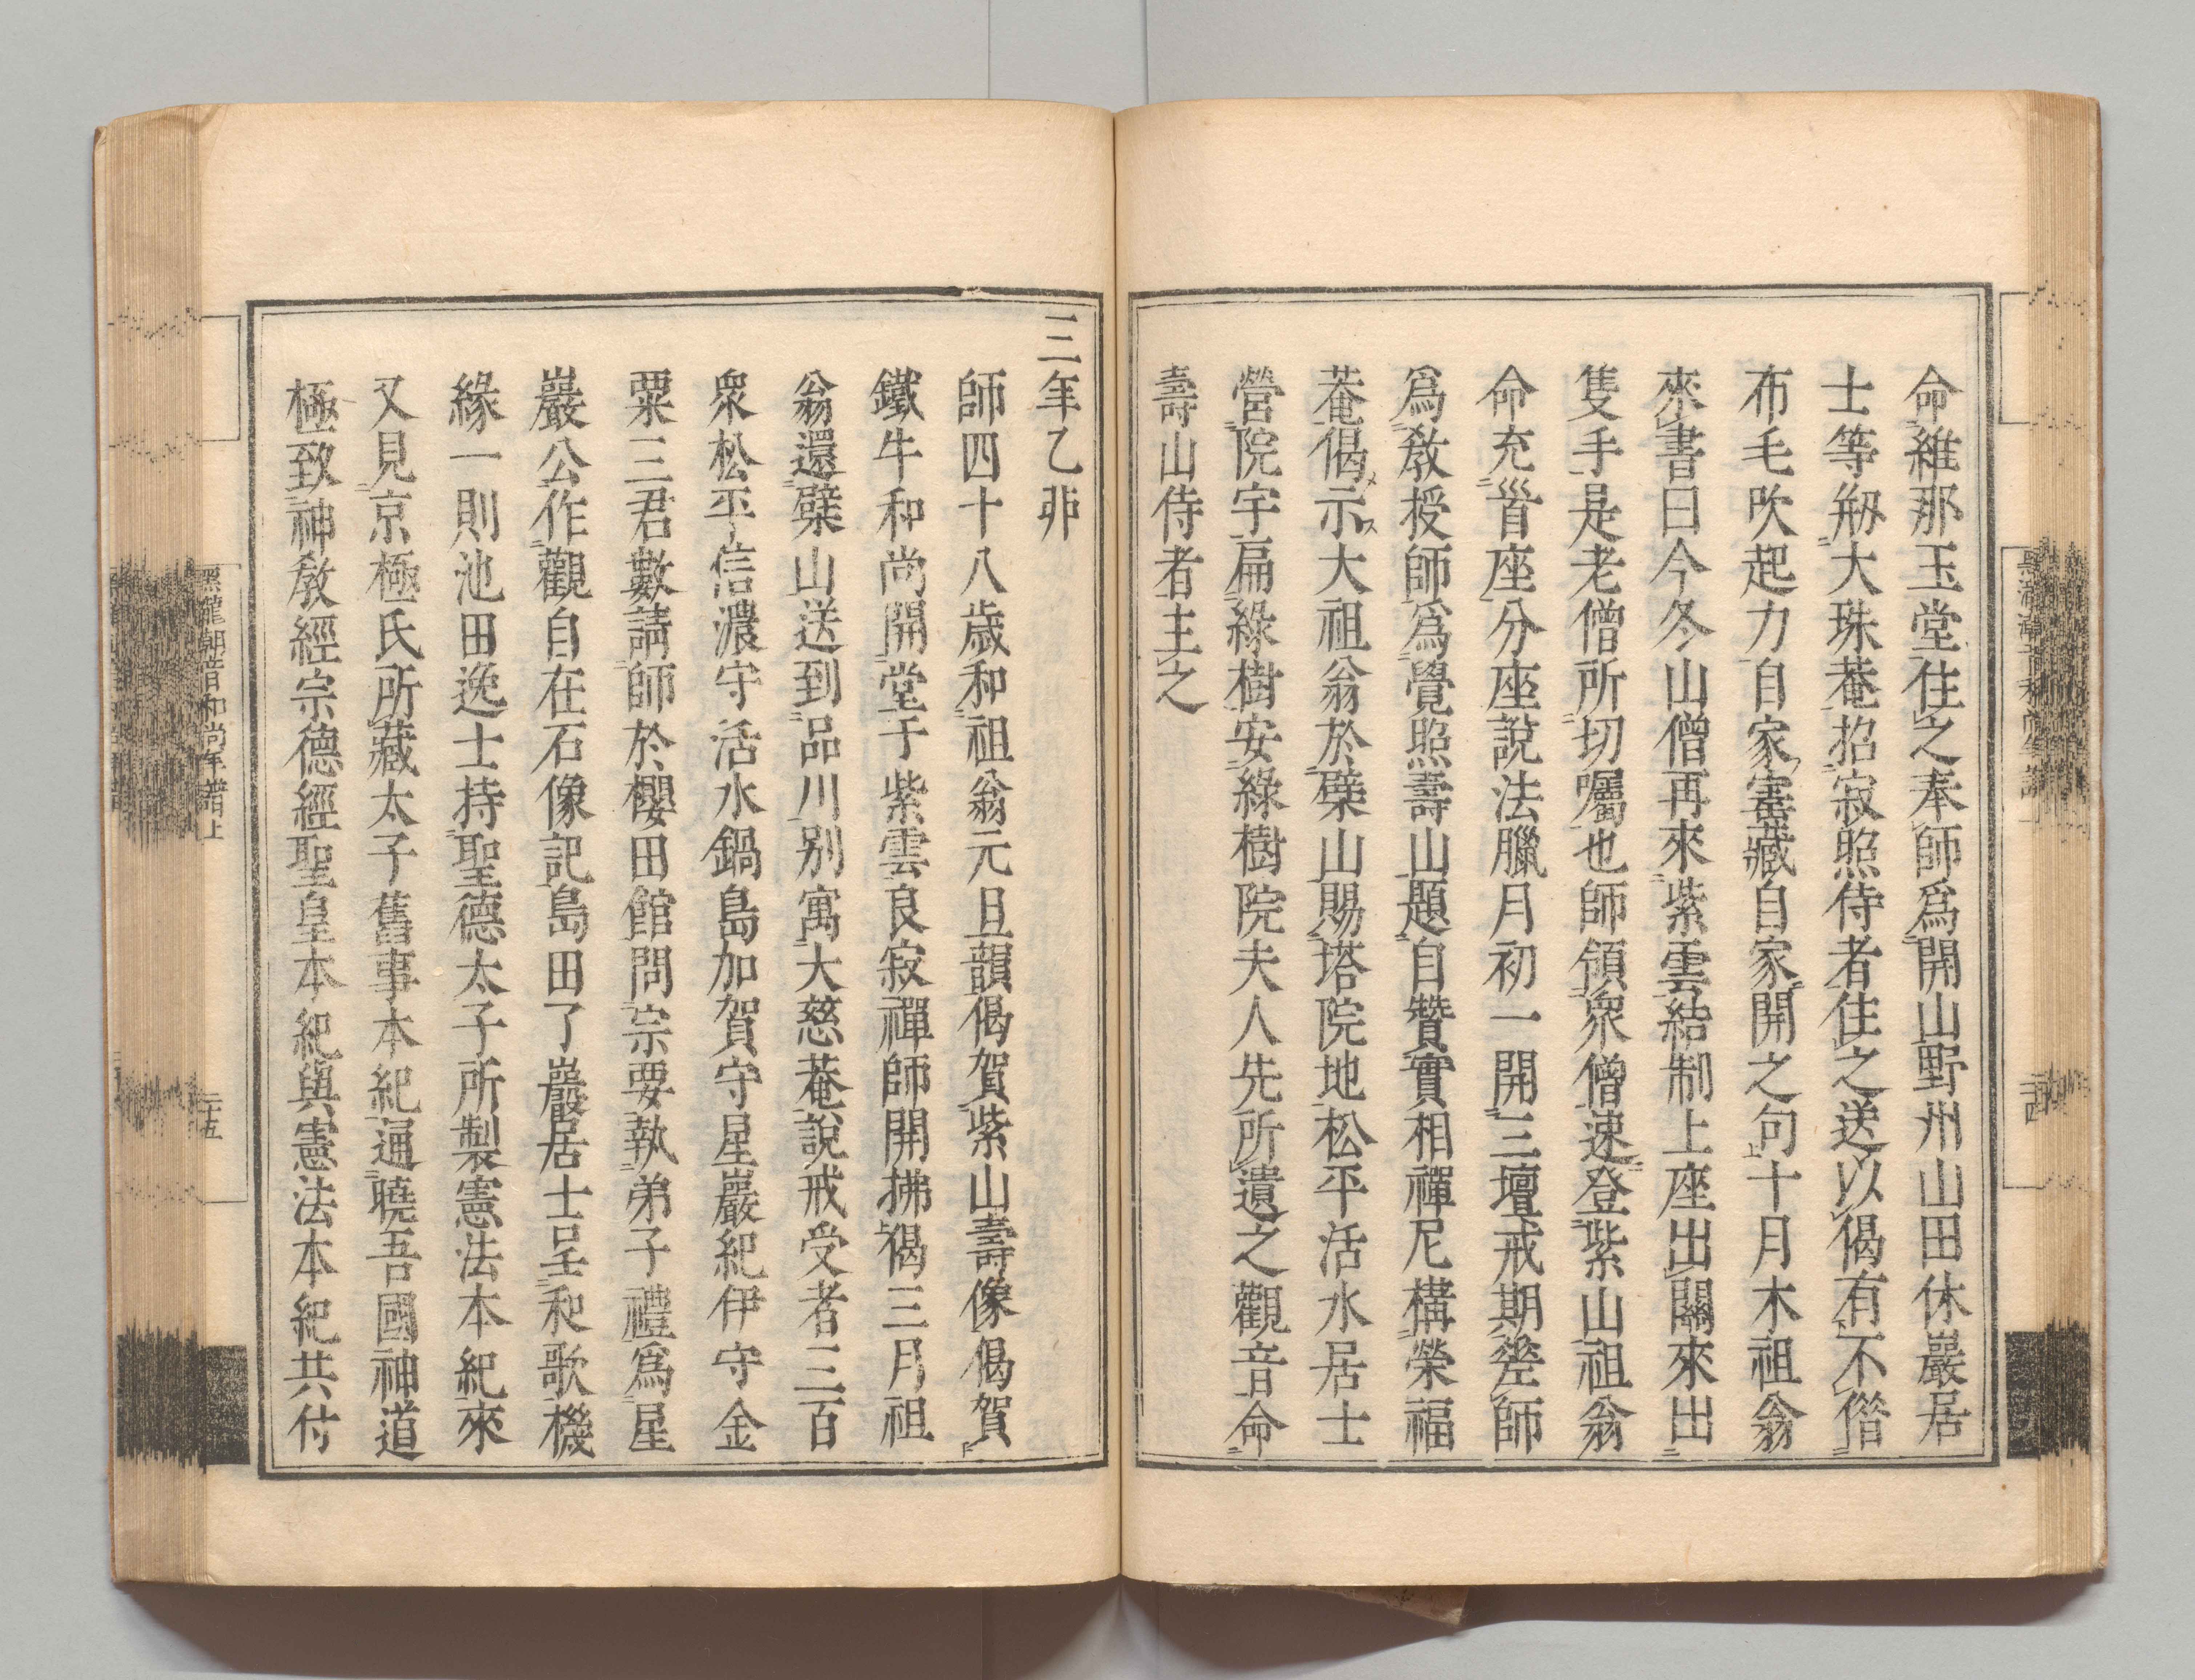 命維那玉堂住之奉師爲開山野州山田休巖居
士等剏大珠菴招寂照侍者住之送以偈有不僭
布毛吹起力自家寚藏自家開之句十月木祖翁
來書曰今冬山僧再來紫雲結制上座出關來出
隻手是老僧所切囑也師領衆僧速登紫山祖翁
命充首座分座說法臘月初一開三壇戒期差師
爲教授師爲覺照壽山題自贊實相禪尼構榮福
菴偈示大祖翁於檗山賜塔院地松平活水居士
營院宇扁綠樹安綠樹院夫人先所遺之觀音命
壽山侍者主之
三年乙丱
師四十八歲和祖翁元旦韻偈賀紫山壽像偈賀
鐵牛和尚開堂于紫雲良寂禪師開拂偈三月祖
翁還檗山送到品川別寓大慈菴說戒受者三百
衆松平信濃守活水鍋島加賀守星巖紀伊守金
粟三君數請師於櫻田館問宗要執弟子禮爲星
巖公作觀自在石像記島田了巖居士呈和歌機
緣一則池田逸士持聖德太子所製憲法本紀來
又見京極氏所藏太子舊事本紀通曉吾國神道
極致神教經宗德經聖皇本紀與憲法本紀共付
黑龍潮音和尚年譜上
二十五